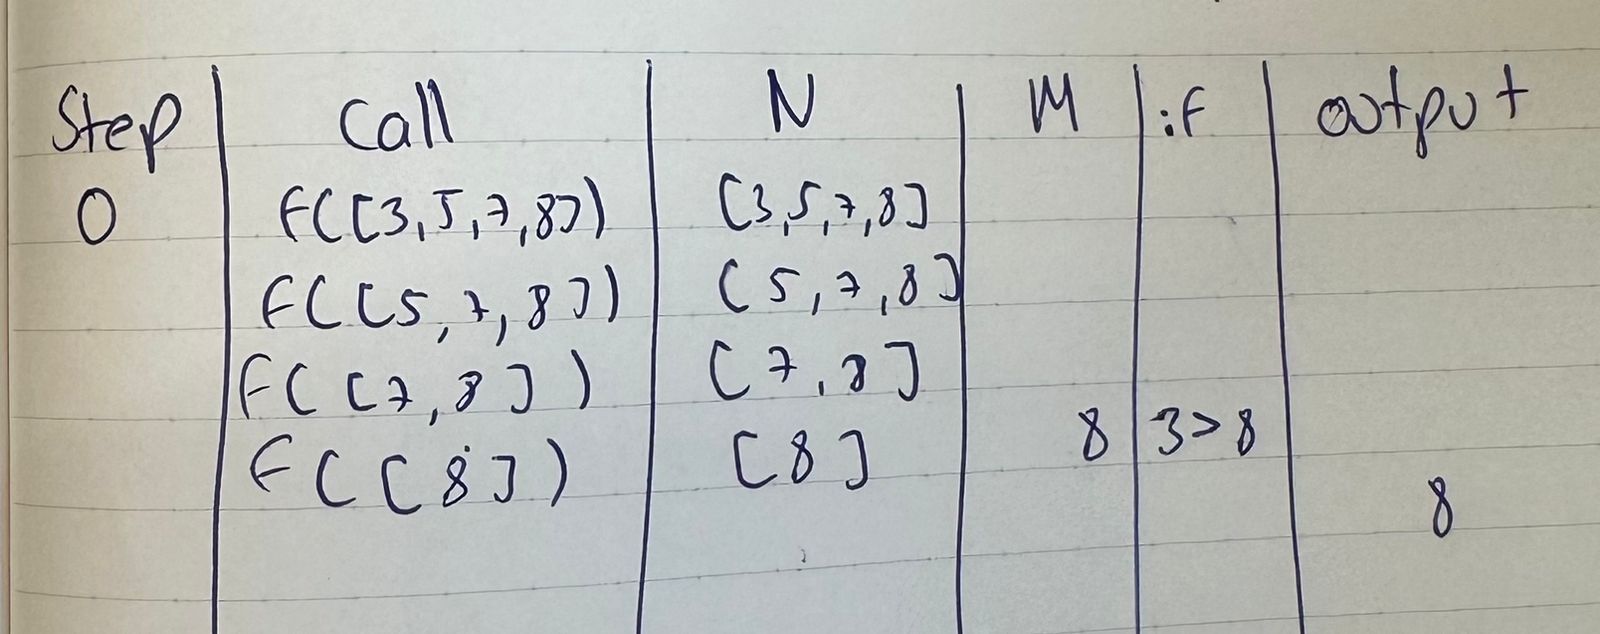 Step Call N M if output
0 f([3,5,7,8]) [3,5,7,8]
f([5,7,8]) [5,7,8]
f([7,8]) [7,8]
f([8]) [8] 8 3>8
8